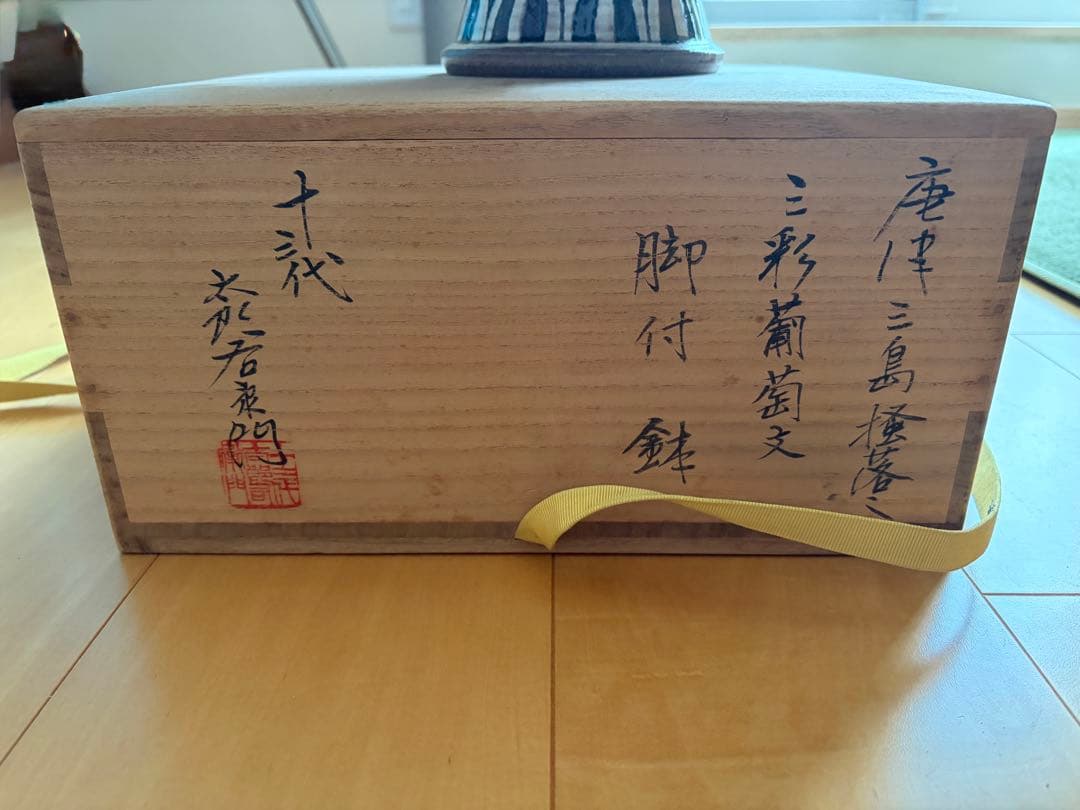 唐津三島掻落し
三彩葡萄文
脚付鉢
十三代
太郎右衛門